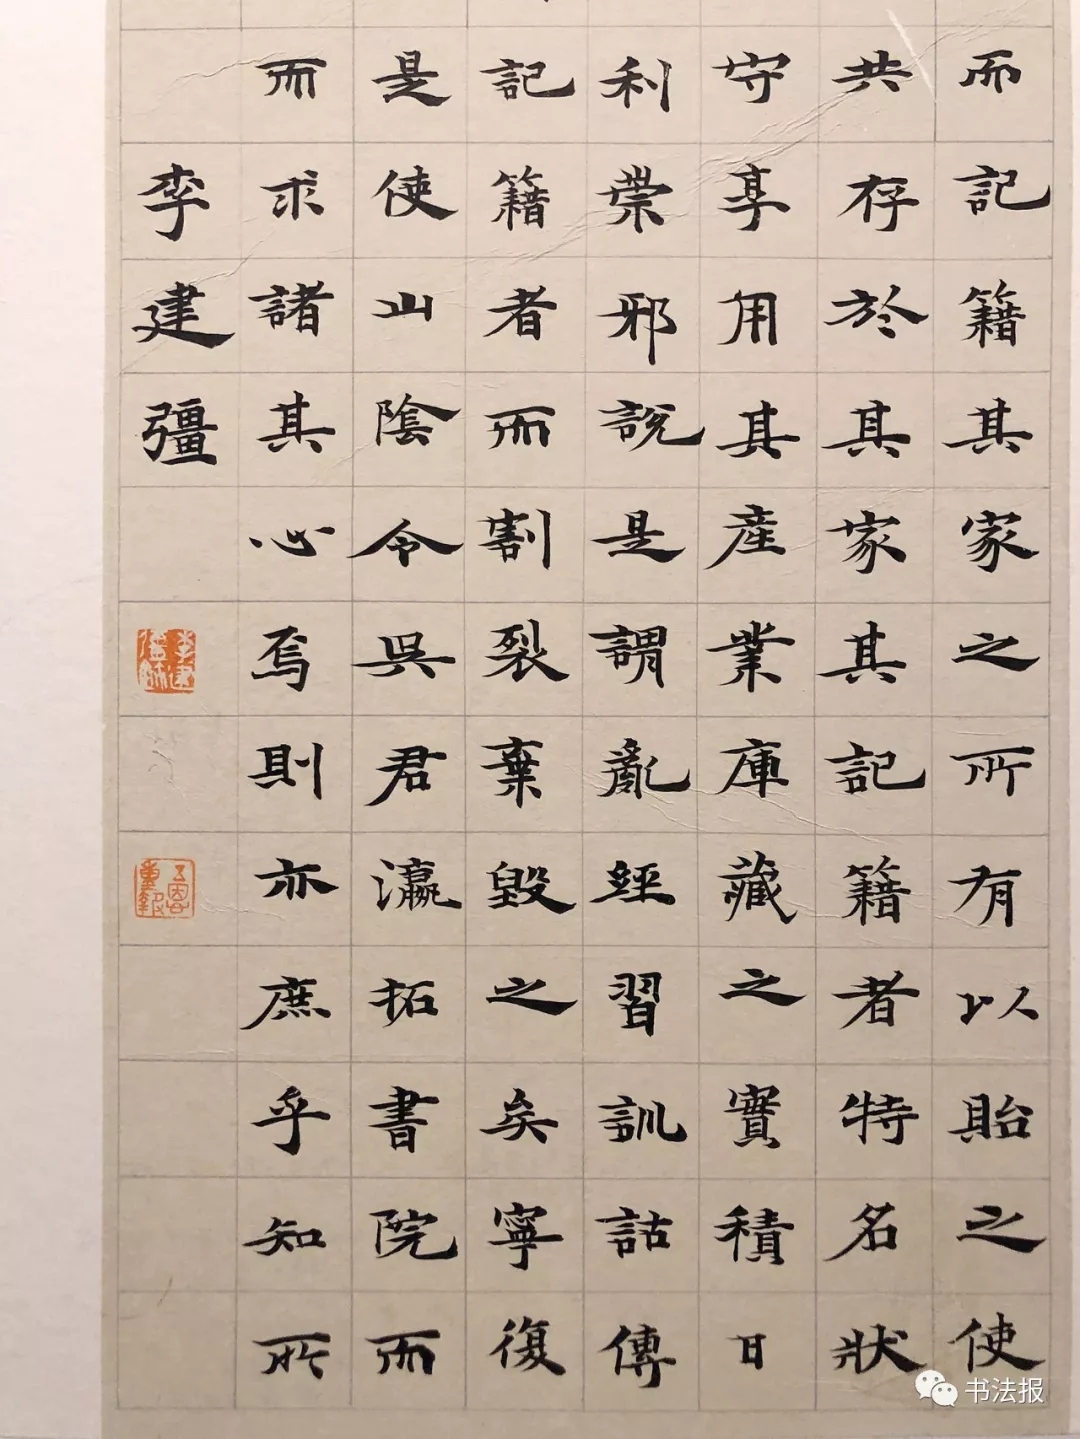 而記籍其家之所有以貽之使
共存於其家其記籍者特名狀
守享用其產業庫藏之實積日
利崇邪說是謂亂經習訓詁傳
記籍者而割裂棄毀之矣寧復
是使山陰令吳君瀛拓書院而
而求諸其心焉則亦庶乎知所
李建彊
书法报